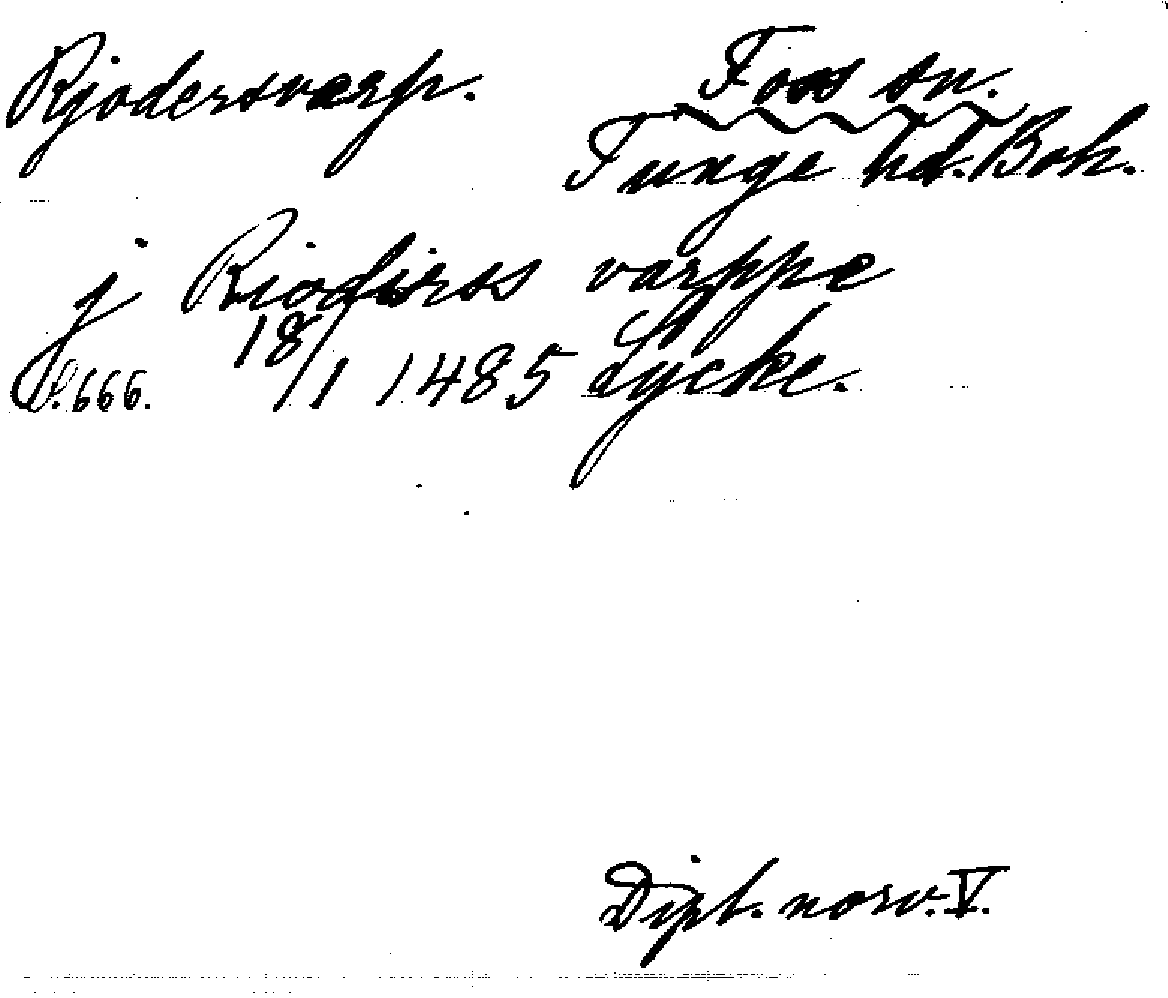 Rjodersvarp. Foss sn.
Tunge hd. Boh.
j Riodierss varppe
S. 666. 18/1 1485 Lycke.
Dipl. norv. V.